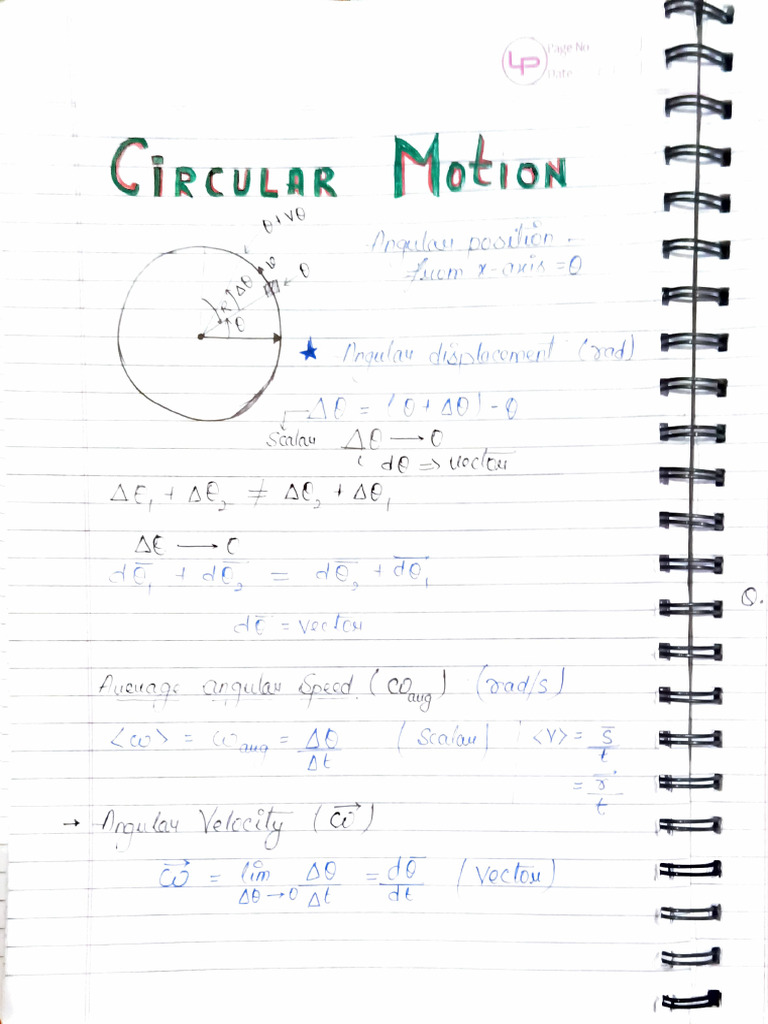 LP Page No
Date
CIRCULAR MOTION
θ + Vθ
Angular position
from x-axis = θ
θ
Δθ
R
θ
★ Angular displacement (rad)
Δθ = (θ + Δθ) - θ
Scalar Δθ → 0
dθ => vector
Δθ₁ + Δθ₂ ≠ Δθ₂ + Δθ₁
Δθ → 0
dθ̅₁ + dθ̅₂ = dθ̅₂ + dθ̅₁
Q.
dθ̅ = vector
Average angular Speed (ω avg) (rad/s)
<ω> = ω avg = Δθ/Δt (Scalar) <v> = s̅/t
= r⃗/t
→ Angular Velocity (ω⃗)
ω⃗ = lim Δθ→0 Δθ/Δt = dθ̅/dt (Vector)